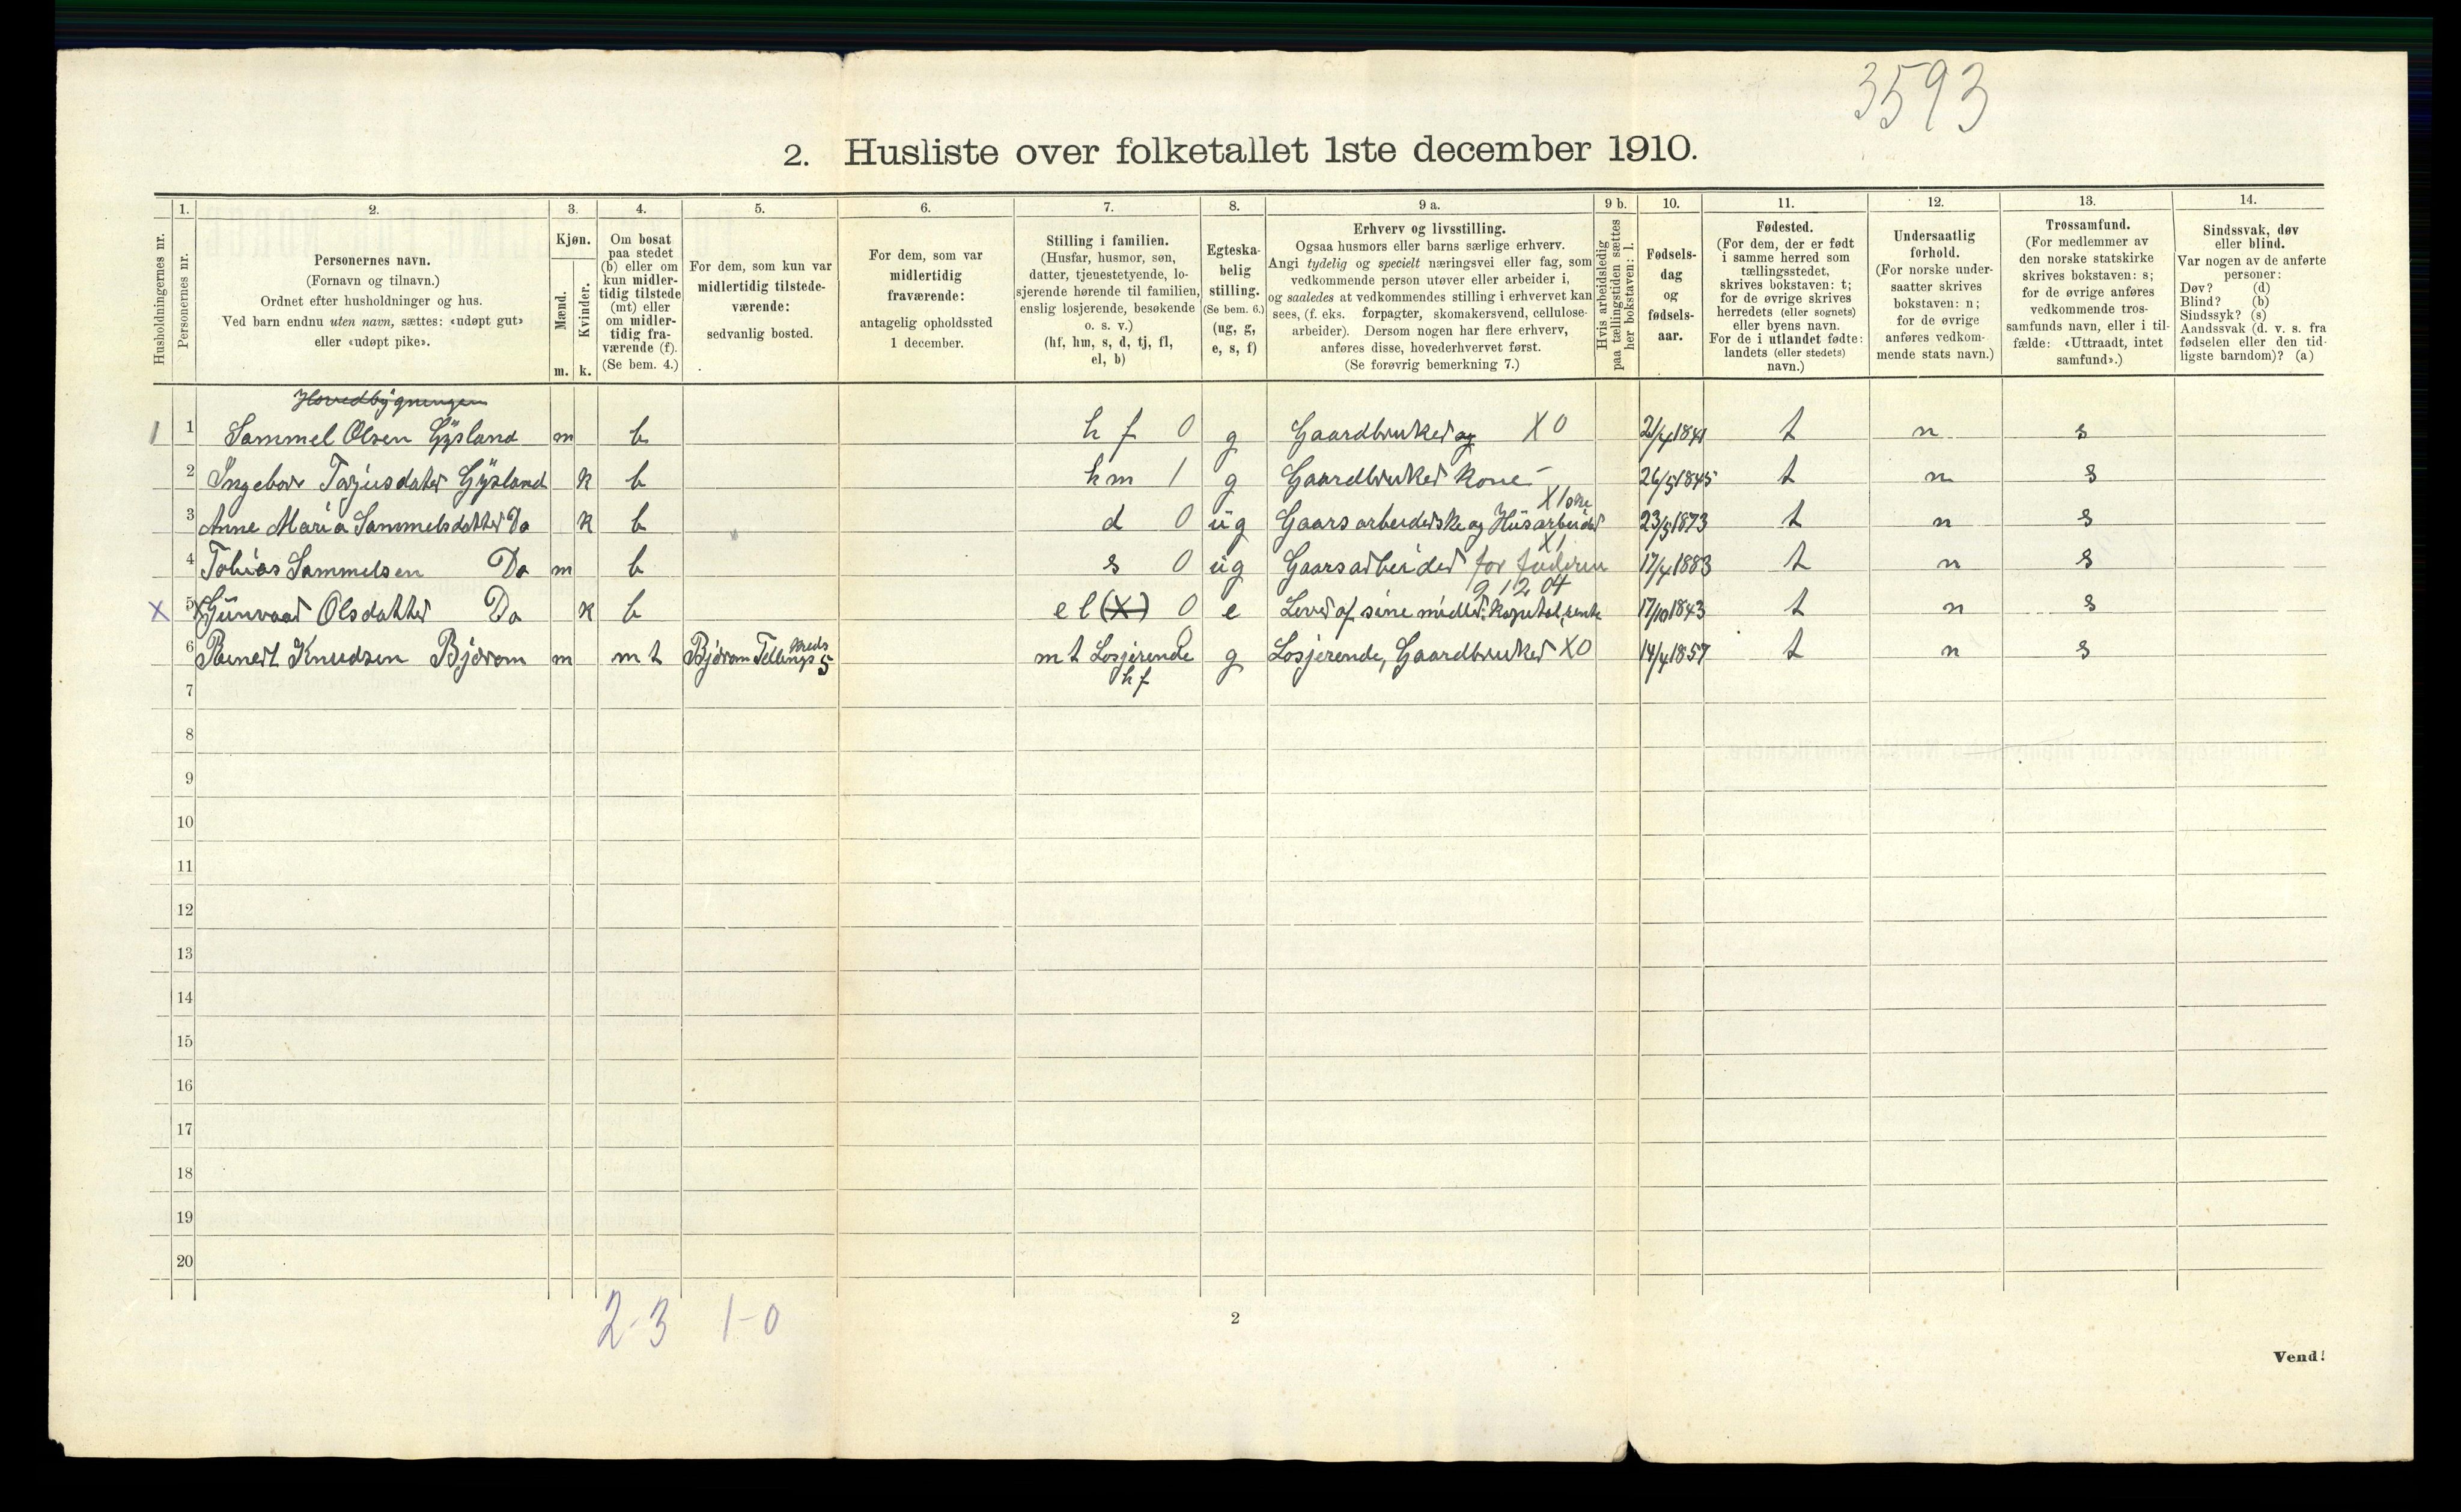 3593
2. Husliste over folketallet 1ste december 1910.
1. 2. 3. 4. 5. 6. 7. 8. 9 a. 9 b. 10. 11. 12. 13. 14.
Husholdningernes nr.
Personernes nr.
Personernes navn.
(Fornavn og tilnavn.)
Ordnet efter husholdninger og hus.
Ved barn endnu uten navn, sættes: «udøpt gut»
eller «udøpt pike».
Kjøn.
Mænd.
Kvinder.
m. k.
Om bosat
paa stedet
(b) eller om
kun midler-
tidig tilstede
(mt) eller
om midler-
tidig fra-
værende (f).
(Se bem. 4.)
For dem, som kun var
midlertidig tilstede-
værende:
sedvanlig bosted.
For dem, som var
midlertidig
fraværende:
antagelig opholdssted
1 december.
Stilling i familien.
(Husfar, husmor, søn,
datter, tjenestetyende, lo-
sjerende hørende til familien,
enslig losjerende, besøkende
o. s. v.)
(hf, hm, s, d, tj, fl,
el, b)
Egteska-
belig
stilling.
(Se bem. 6.)
(ug, g,
e, s, f)
Erhverv og livsstilling.
Ogsaa husmors eller barns særlige erhverv.
Angi tydelig og specielt næringsvei eller fag, som
vedkommende person utøver eller arbeider i,
og saaledes at vedkommendes stilling i erhvervet kan
sees, (f. eks. forpagter, skomakersvend, cellulose-
arbeider). Dersom nogen har flere erhverv,
anføres disse, hovederhvervet først.
(Se forøvrig bemerkning 7.)
Hvis arbeidsledig
paa tællingstiden sættes
her bokstaven: l.
Fødsels-
dag
og
fødsels-
aar.
Fødested.
(For dem, der er født
i samme herred som
tællingsstedet,
skrives bokstaven: t;
for de øvrige skrives
herredets (eller sognets)
eller byens navn.
For de i utlandet fødte:
landets (eller stedets)
navn.)
Undersaatlig
forhold.
(For norske under-
saatter skrives
bokstaven: n;
for de øvrige
anføres vedkom-
mende stats navn.)
Trossamfund.
(For medlemmer av
den norske statskirke
skrives bokstaven: s;
for de øvrige anføres
vedkommende tros-
samfunds navn, eller i til-
fælde: «Uttraadt, intet
samfund».)
Sindssvak, døv
eller blind.
Var nogen av de anførte
personer:
Døv? (d)
Blind? (b)
Sindssyk? (s)
Aandssvak (d. v. s. fra
fødselen eller den tid-
ligste barndom)? (a)
Hovedbygningen
1 1 Sammel Olsen Gysland m b hf 0 g Gaardbruker og X0 2/4 1841 t n s
2 Ingebor Tarjusdater Gysland k b hm 1 g Gaardbruker kone - 26/5 1845 t n s
X1 ske
3 Anne Maria Sammelsdatter Do k b d 0 ug Gaarsarbeiderske og Husarbeider 23/5 1873 t n s
X1
4 Tobias Sammelsen Do m b s 0 ug Gaarsarbeider for faderen 17/4 1883 t n s
9 12 04
X 5 X Gunvaar Olsdatter Do k b el (X) 0 e Lever af sine midler: kapetal, rente 17/10 1843 t n s
kreds
6 Reinert Knudsen Bjørom m mt Bjørom Tellings 5 mt Losjerende 0 g Losjerende, Gaardbruker X0 14/4 1857 t n s
hf
7
8
9
10
11
12
13
14
15
16
17
18
19
20
2-3 1-0
2
Vend!